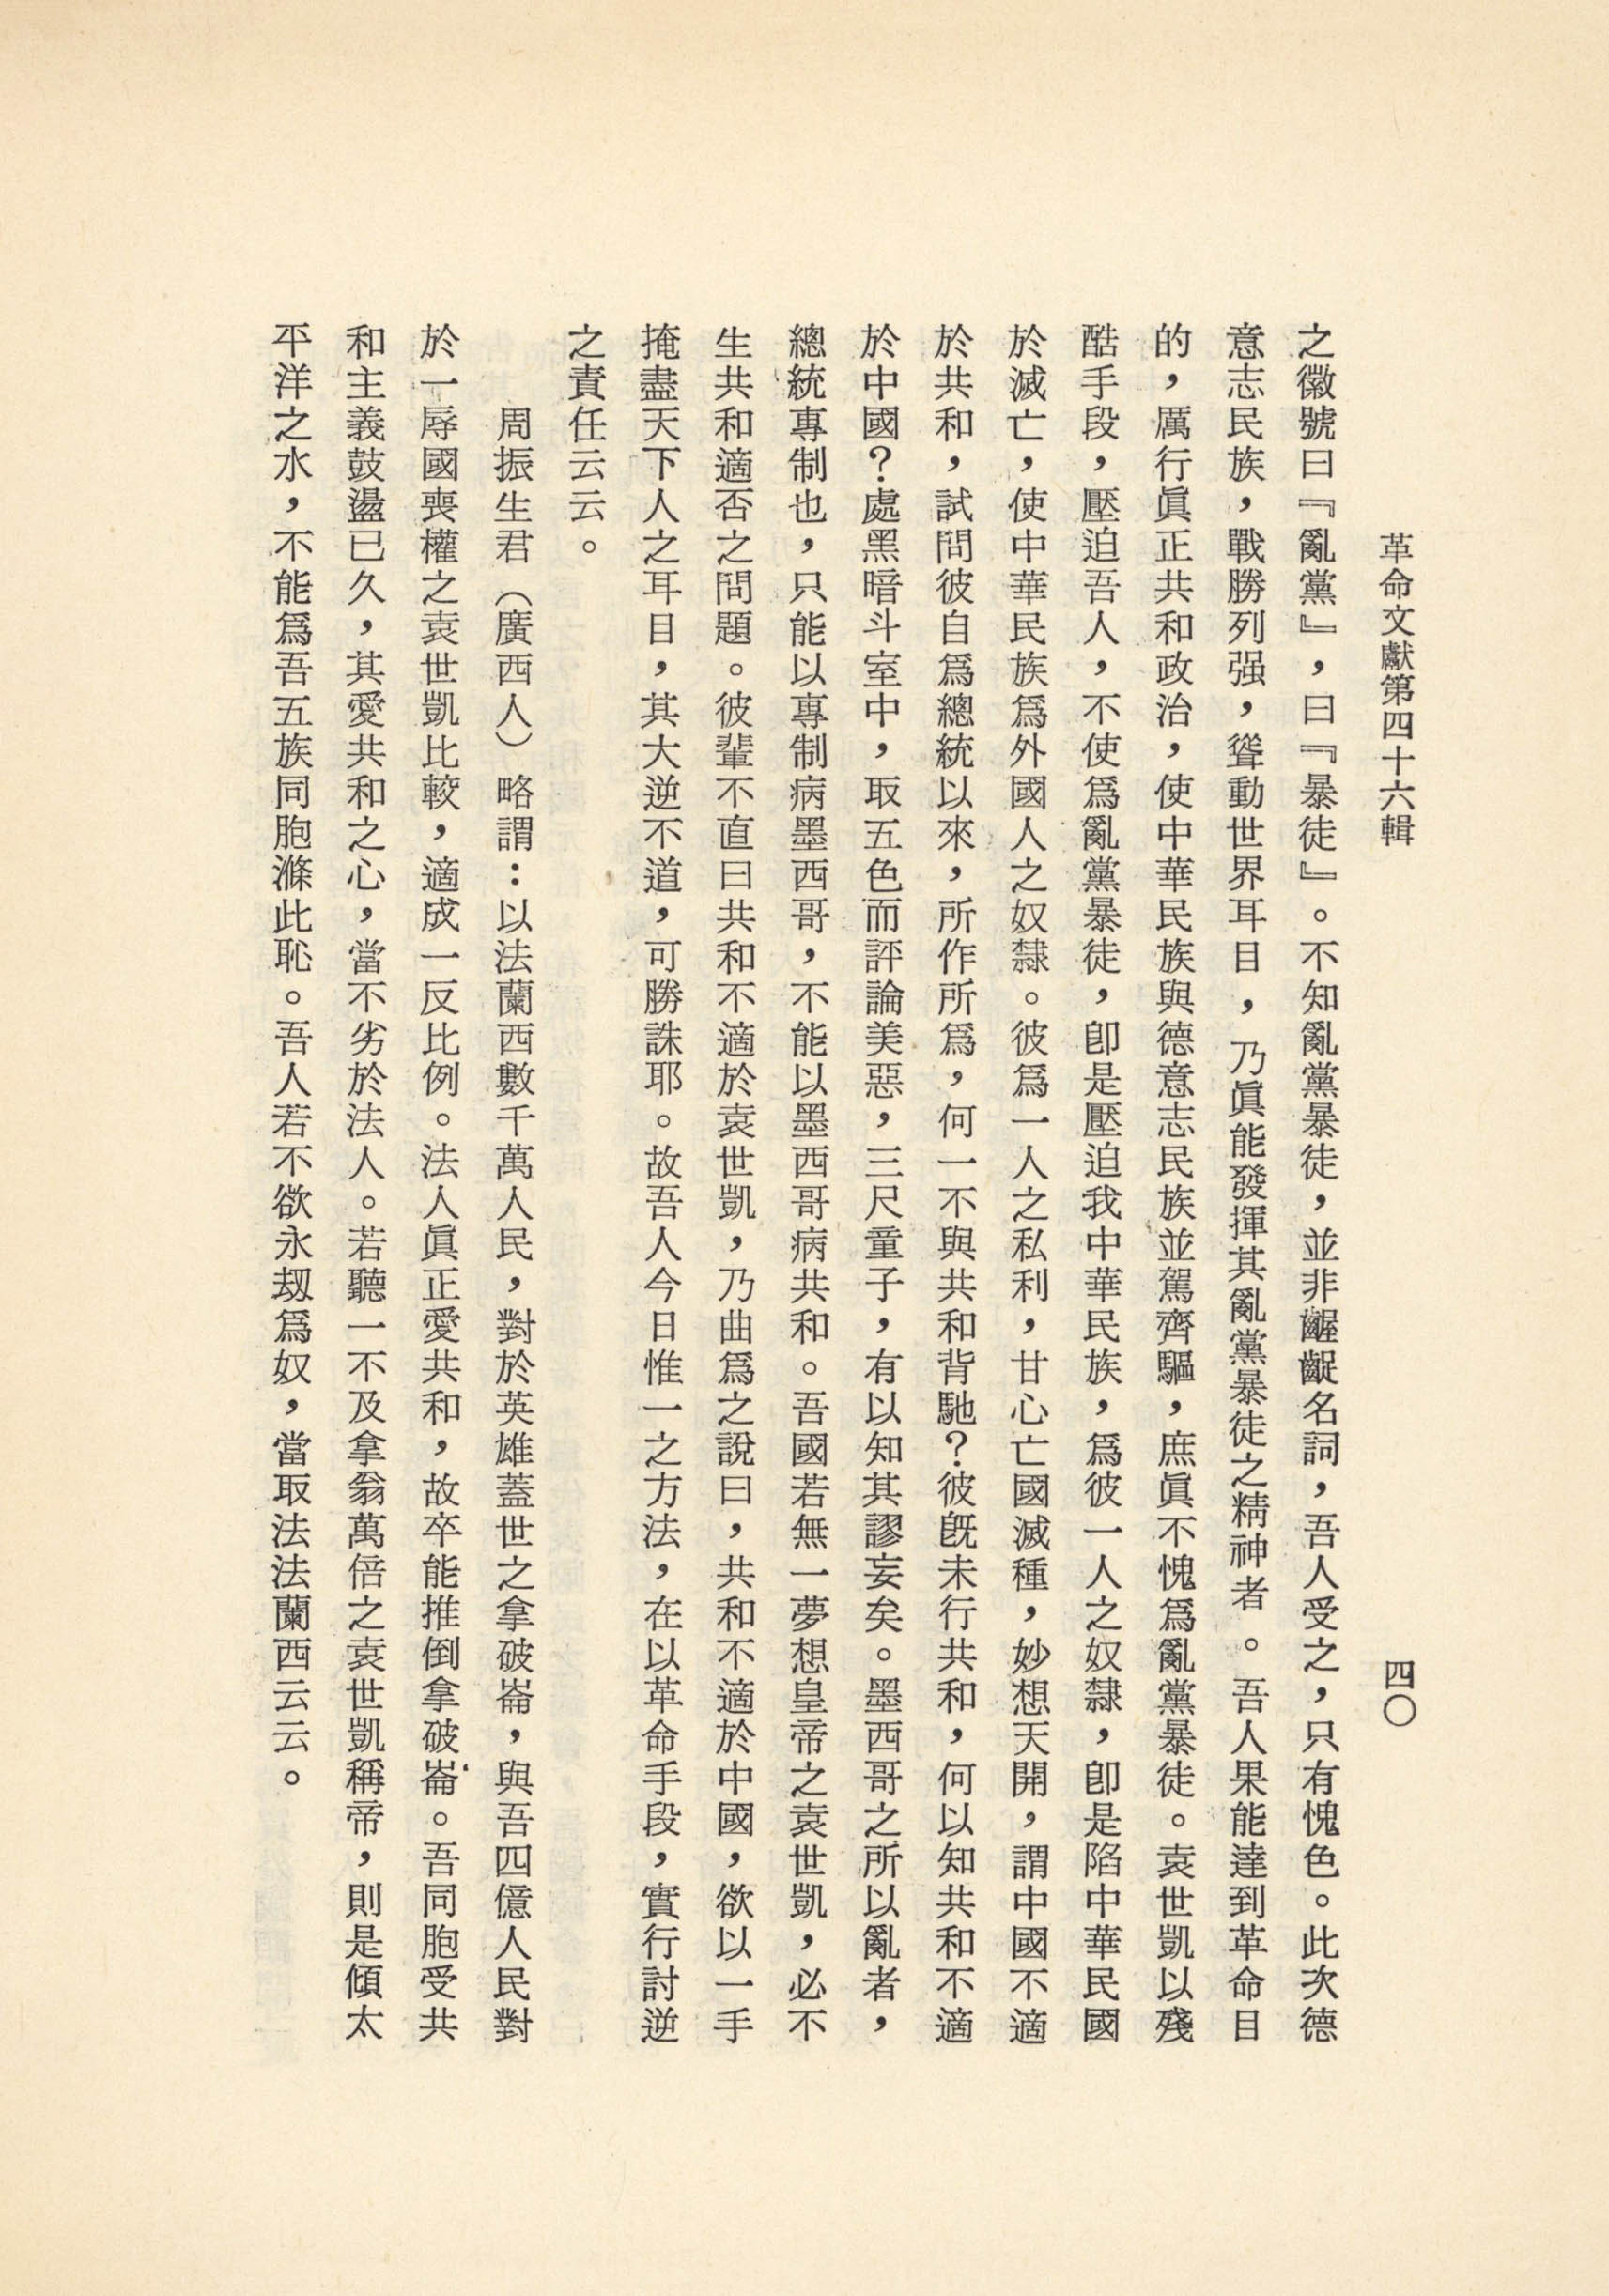 革命文獻第四十六輯
四〇
之徽號曰『亂黨』，曰『暴徒』。不知亂黨暴徒，並非齷齪名詞，吾人受之，只有愧色。此次德
意志民族，戰勝列强，聳動世界耳目，乃眞能發揮其亂黨暴徒之精神者。吾人果能達到革命目
的，厲行眞正共和政治，使中華民族與德意志民族並駕齊驅，庶眞不愧爲亂黨暴徒。袁世凱以殘
酷手段，壓迫吾人，不使爲亂黨暴徒，卽是壓迫我中華民族，爲彼一人之奴隸，卽是陷中華民國
於滅亡，使中華民族爲外國人之奴隸。彼爲一人之私利，甘心亡國滅種，妙想天開，謂中國不適
於共和，試問彼自爲總統以來，所作所爲，何一不與共和背馳？彼旣未行共和，何以知共和不適
於中國？處黑暗斗室中，取五色而評論美惡，三尺童子，有以知其謬妄矣。墨西哥之所以亂者，
總統專制也，只能以專制病墨西哥，不能以墨西哥病共和。吾國若無一夢想皇帝之袁世凱，必不
生共和適否之問題。彼輩不直曰共和不適於袁世凱，乃曲爲之說曰，共和不適於中國，欲以一手
掩盡天下人之耳目，其大逆不道，可勝誅耶。故吾人今日惟一之方法，在以革命手段，實行討逆
之責任云云。
周振生君（廣西人）略謂：以法蘭西數千萬人民，對於英雄蓋世之拿破崙，與吾四億人民對
於一辱國喪權之袁世凱比較，適成一反比例。法人眞正愛共和，故卒能推倒拿破崙。吾同胞受共
和主義鼓盪已久，其愛共和之心，當不劣於法人。若聽一不及拿翁萬倍之袁世凱稱帝，則是傾太
平洋之水，不能爲吾五族同胞滌此恥。吾人若不欲永刼爲奴，當取法法蘭西云云。